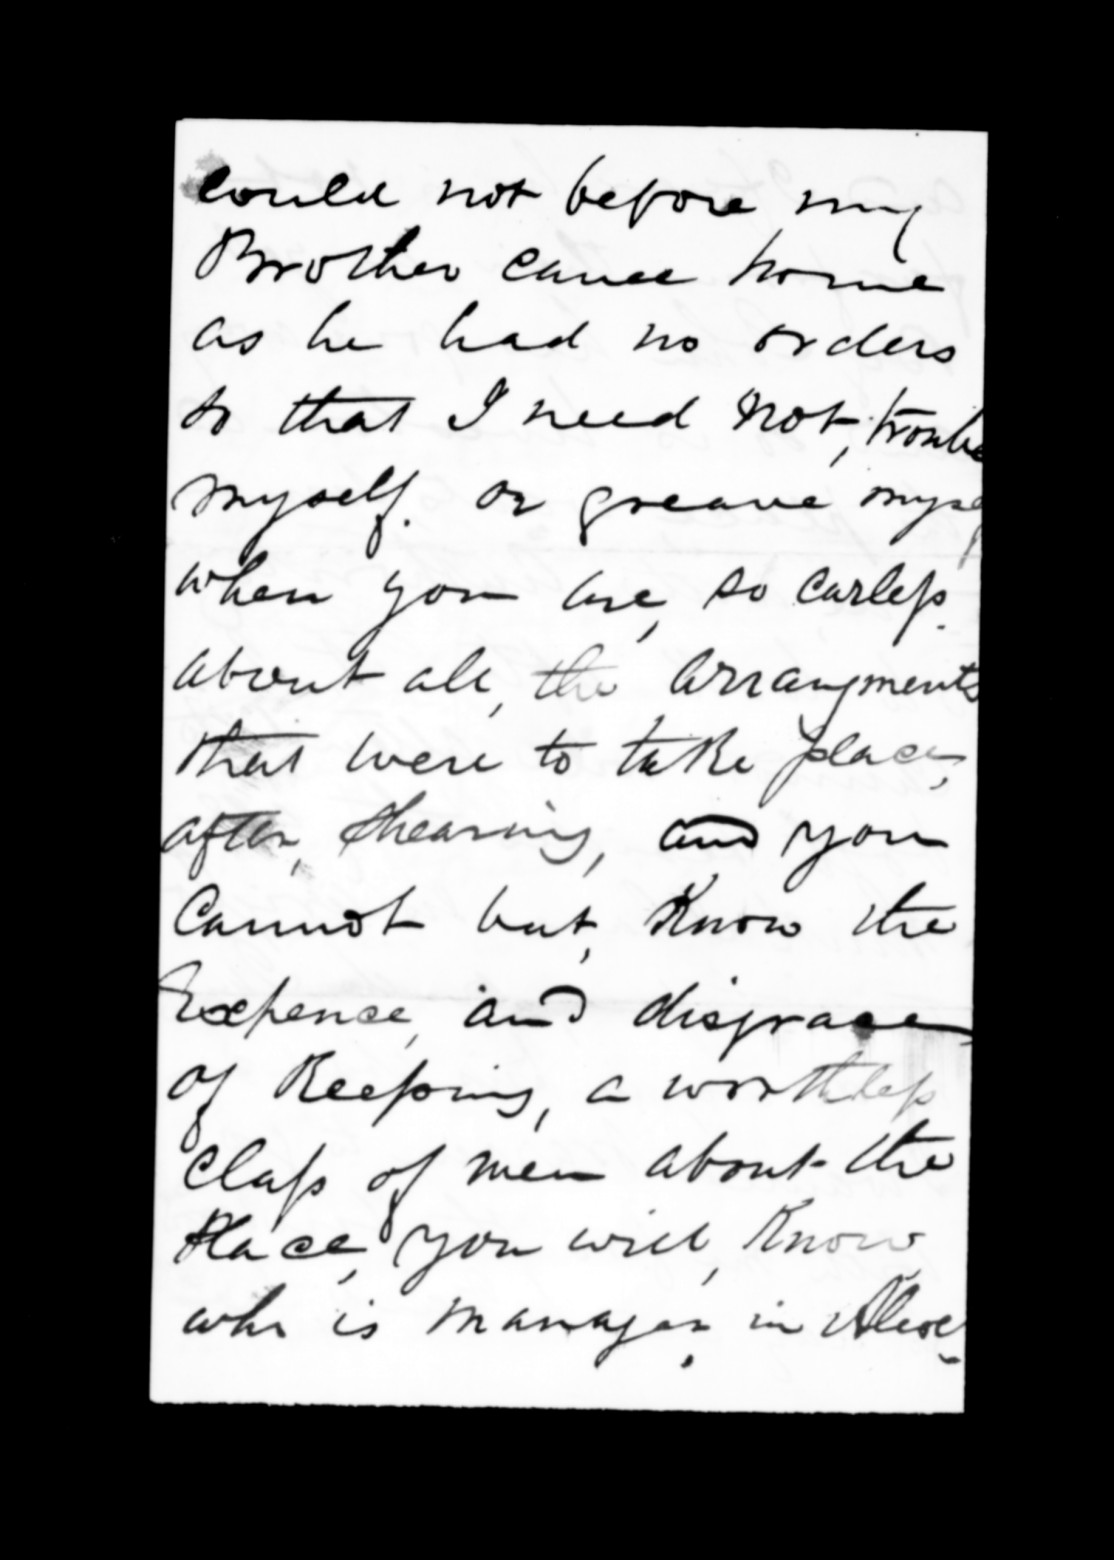 could not before my
Brother came home
as he had no orders
so that I need not, trouble
myself. or greave myself
when you are, so carless.
about all, the arrangments
that were to take place,
after, shearing, and you
Cannot but, Know the
Expence, and disgrace
of Keeping, a worthless
class of men about the
Place, you will, Know
who is manager, in